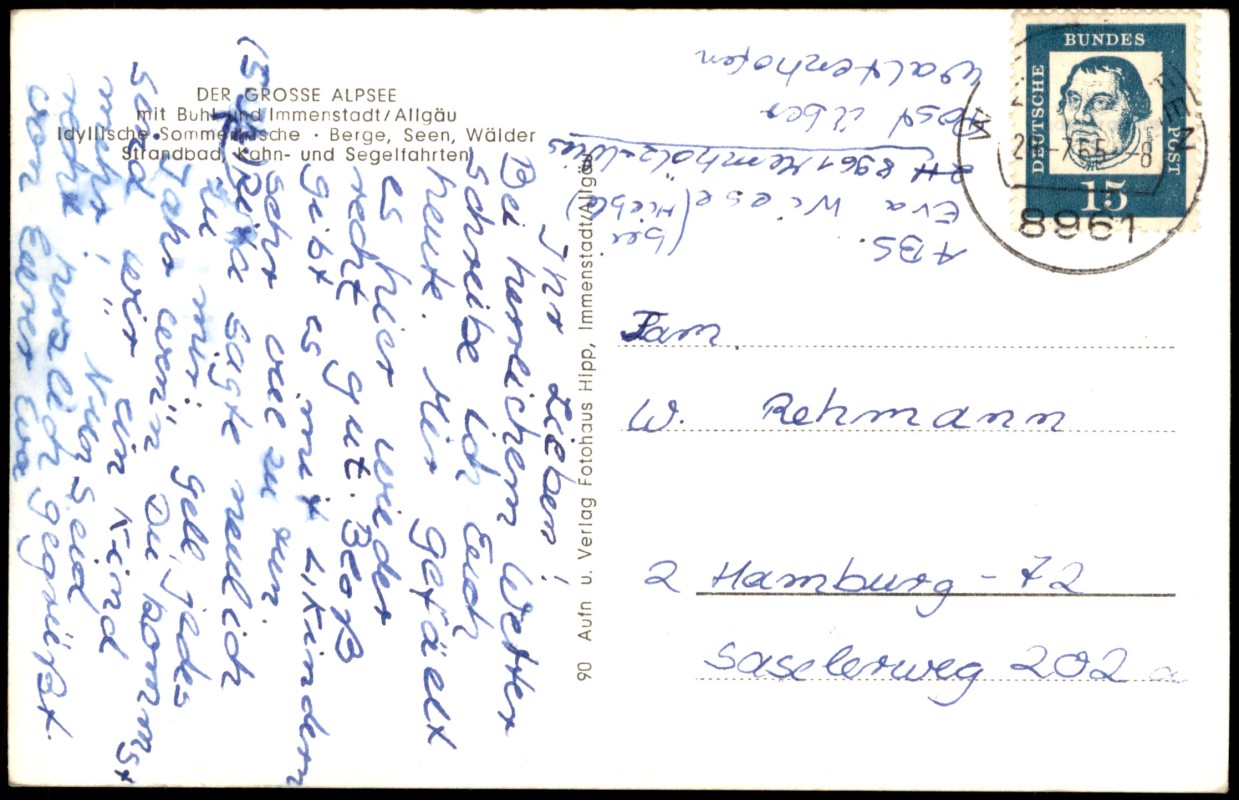 DER GROSSE ALPSEE
mit Buhl und Immenstadt/Allgäu
Idyllische Sommerfrische · Berge, Seen, Wälder
Strandbad, Kahn- und Segelfahrten
90 Aufn u. Verlag Fotohaus Hipp, Immenstadt/Allgäu
Ihr Lieben!
Bei herrlichem Wetter
schreibe ich Euch
heute. Mir gefällt
es hier wieder
recht gut. Bloß
gibt es mit 4 Kindern
sehr viel zu tun.
sagte neulich
zu mir: gell jedes
Jahr wenn Du kommst
seid wir ein Kind
mehr! Nun seid
recht herzlich gegrüßt
von Eurer Eva
ABS.
Eva Wiese (bei Hiebla)
8961
Post über
Waltenhofen
DEUTSCHE
BUNDES
POST
Luther
15
8961
Fam.
W. Rehmann
2 Hamburg-72
Saselerweg 202 a